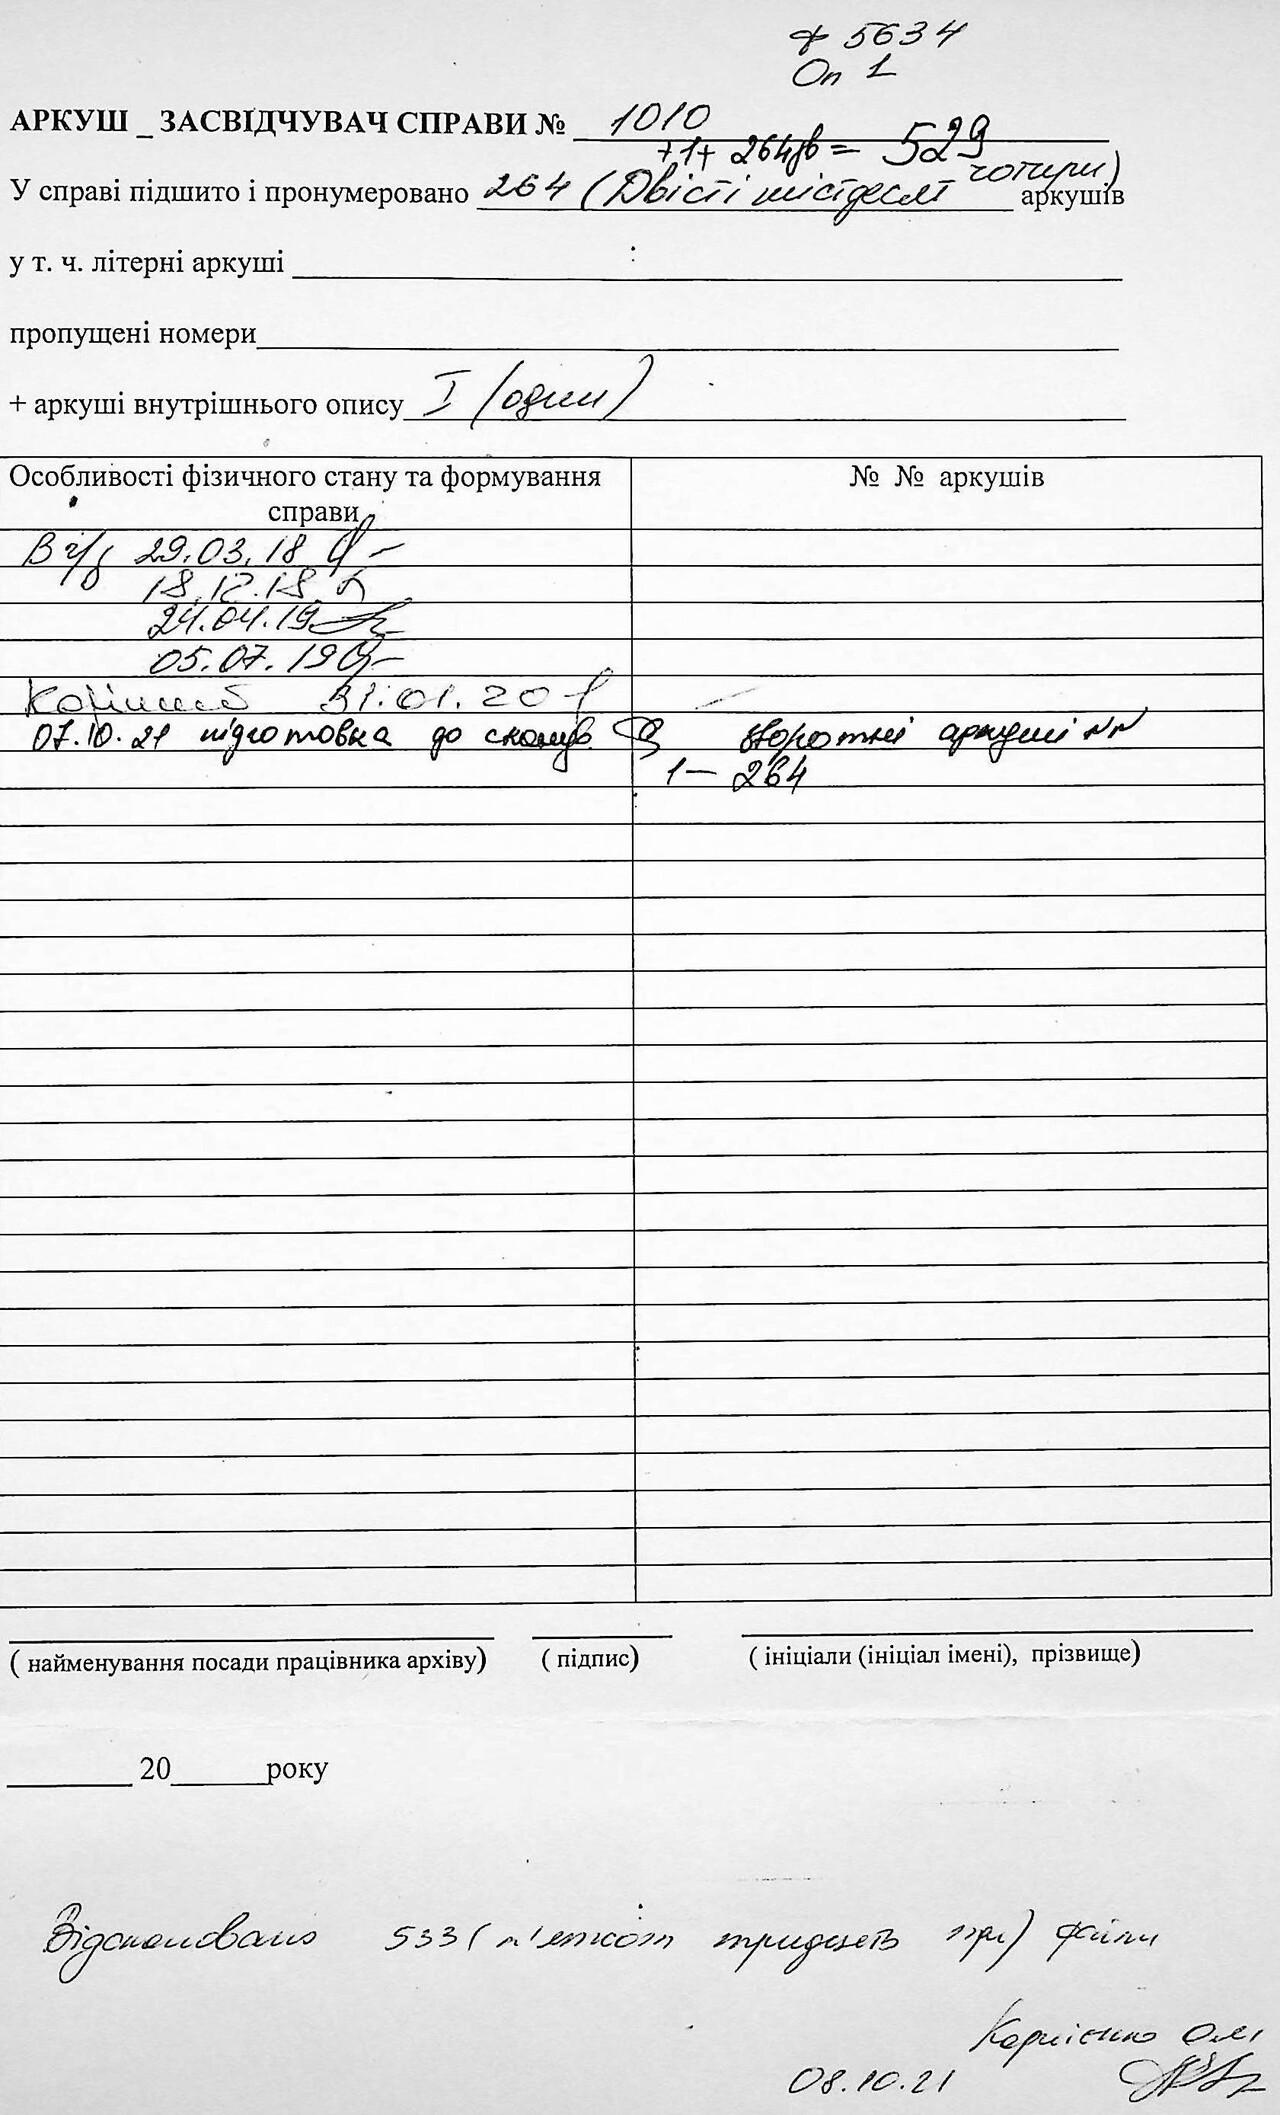 ф 5634
Оп 1
АРКУШ _ ЗАСВІДЧУВАЧ СПРАВИ № 1010
+1+ 264зв = 529
У справі підшито і пронумеровано 264 (Двісті шістдесят чотири) аркушів
у т. ч. літерні аркуші
пропущені номери
+ аркуші внутрішнього опису I (один)
Особливості фізичного стану та формування справи
№ № аркушів
В ч/з 29.03.18
18.12.18
24.04.19
05.07.19
31.01.20
07.10.21 підготовка до сканув. зворотні аркуші NN
1 — 264
( найменування посади працівника архіву) ( підпис) ( ініціали (ініціал імені), прізвище)
20 року
Відскановано 533 (п'ятсот тридцять три) файли
Корнієнко
08.10.21